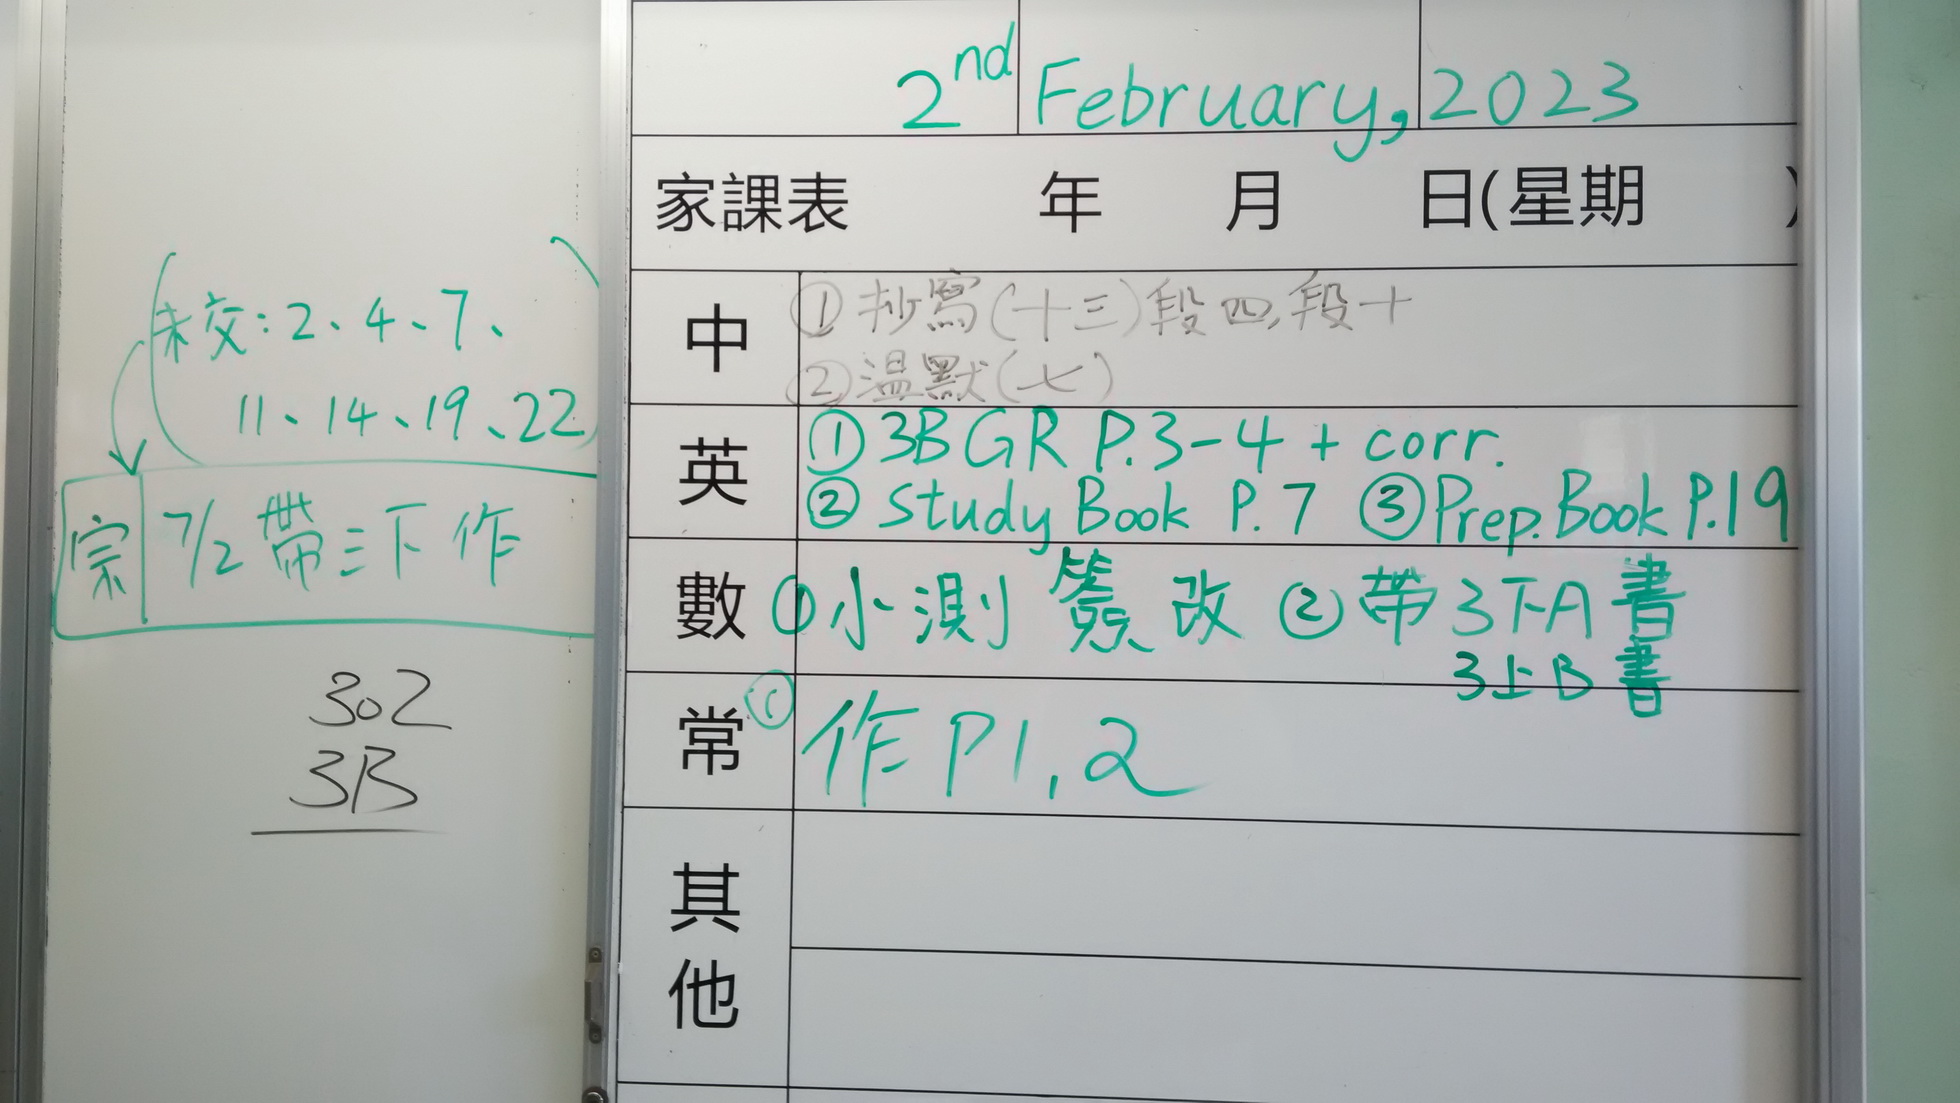 未交：2、4、7、
11、14、19、22
宗 7/2 帶三下作
302
3B
2nd February, 2023
家課表 年 月 日(星期 )
中 ①抄寫(十三)段四,段十
②溫默(七)
英 ①3B GR P.3-4 + corr.
②Study Book P.7 ③Prep.Book P.19
數 ①小測簽改 ②帶3下A書
3上B書
常 ①作P1,2
其他